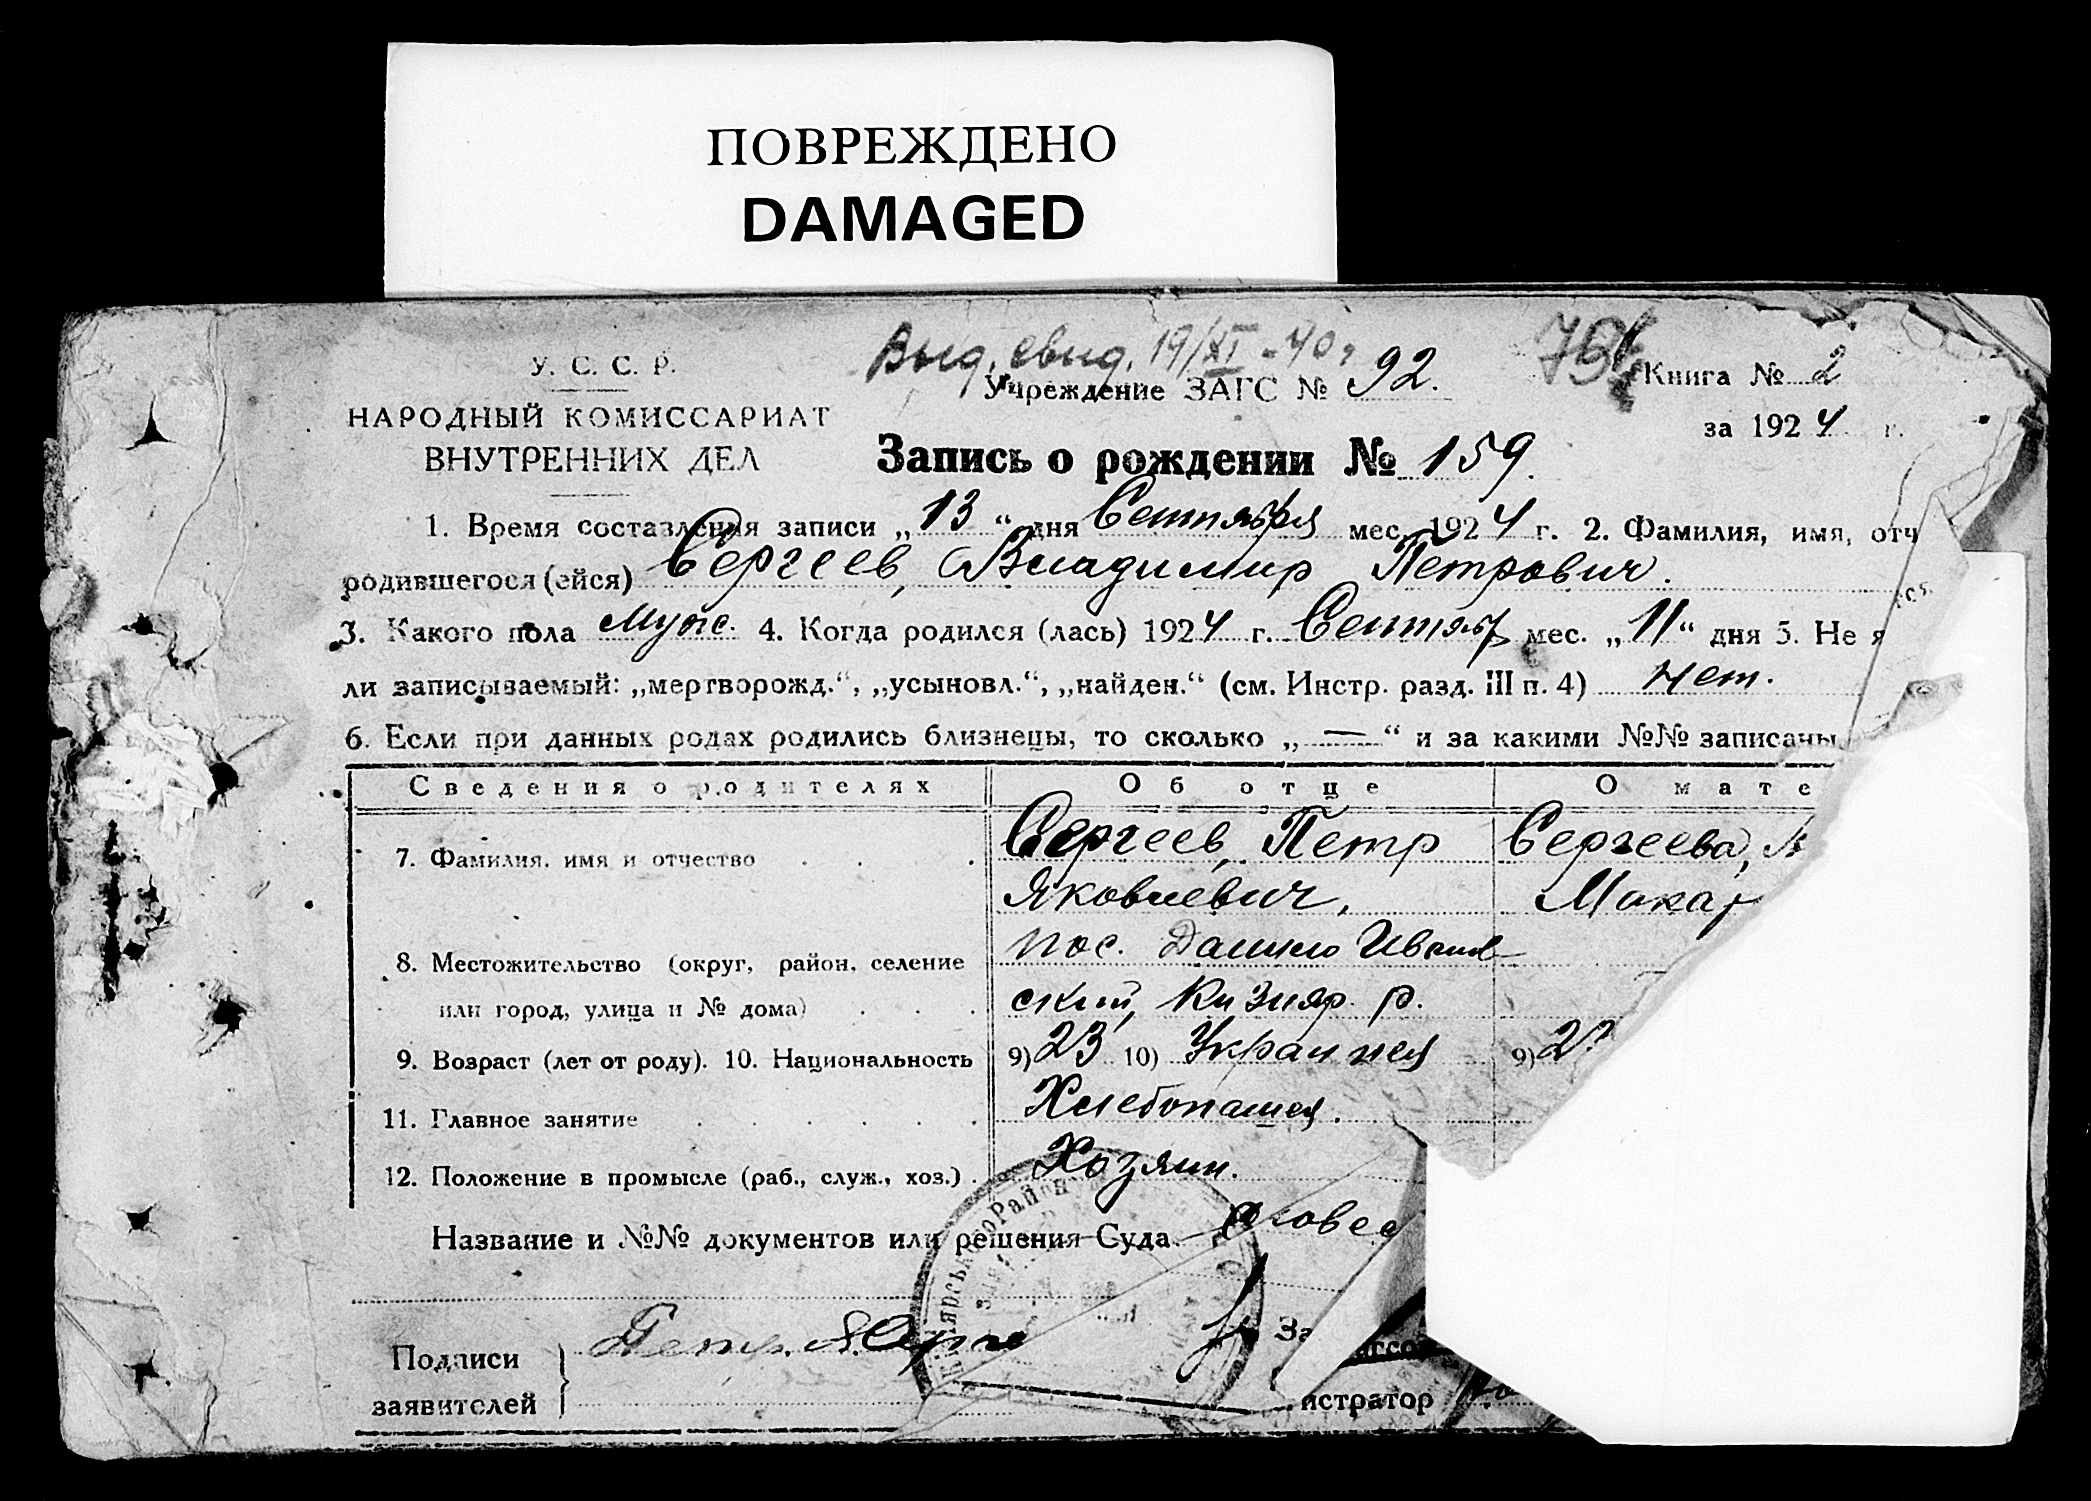 ПОВРЕЖДЕНО
DAMAGED
У. С. С. Р.
НАРОДНЫЙ КОМИССАРИАТ
ВНУТРЕННИХ ДЕЛ
Выд. свид. 19/XI - 40 г
Учреждение ЗАГС № 92.
Книга № 2
за 1924 г.
Запись о рождении № 159.
1. Время составления записи „13“ дня Сентября мес. 1924 г. 2. Фамилия, имя, отч
родившегося (ейся) Сергеев, Владимир Петрович.
3. Какого пола Муж. 4. Когда родился (лась) 1924 г. Сентябр мес. „11“ дня 5. Не я
ли записываемый: „мертворожд.“, „усыновл.“, „найден.“ (см. Инстр. разд. III п. 4) нет.
6. Если при данных родах родились близнецы, то сколько „—“ и за какими №№ записаны
Сведения о родителях Об отце О мате
7. Фамилия, имя и отчество Сергеев, Петр Сергеева,
Яковлевич, Макар
8. Местожительство (округ, район, селение пос.
или город, улица и № дома) ский, Кизияр. р.
9. Возраст (лет от роду). 10. Национальность 9) 23 10) Украинец 9) 2
11. Главное занятие Хлебопашец.
12. Положение в промысле (раб., служ., хоз.) Хозяин.
Название и №№ документов или решения Суда
Подписи
заявителей
истратор